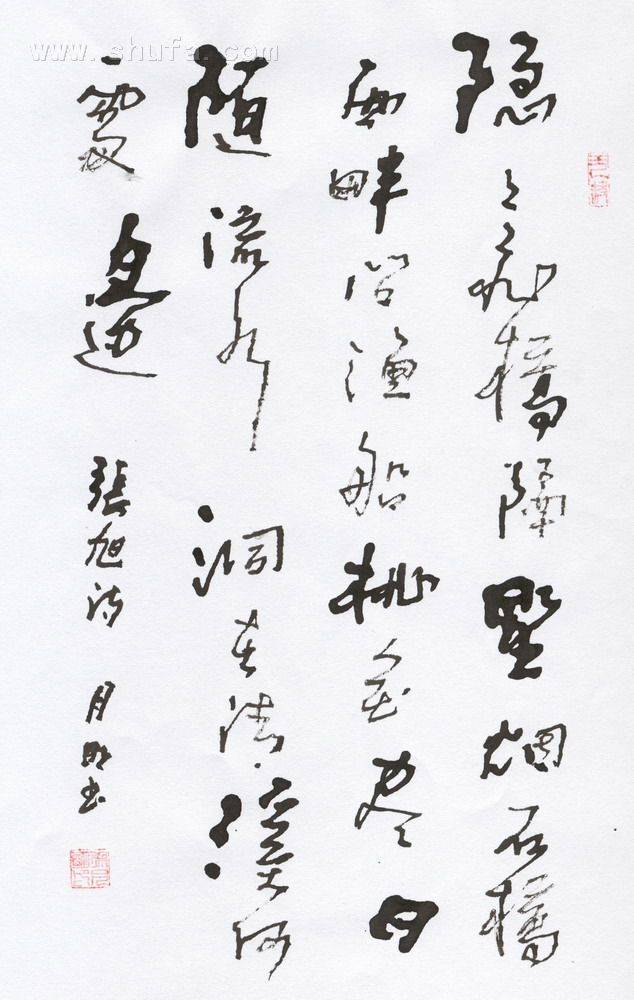 www.shufa.com
隐〻飞橋隔野烟石橋
西畔问渔船桃花尽日
随流水洞在清溪何
處边
張旭诗 月明书